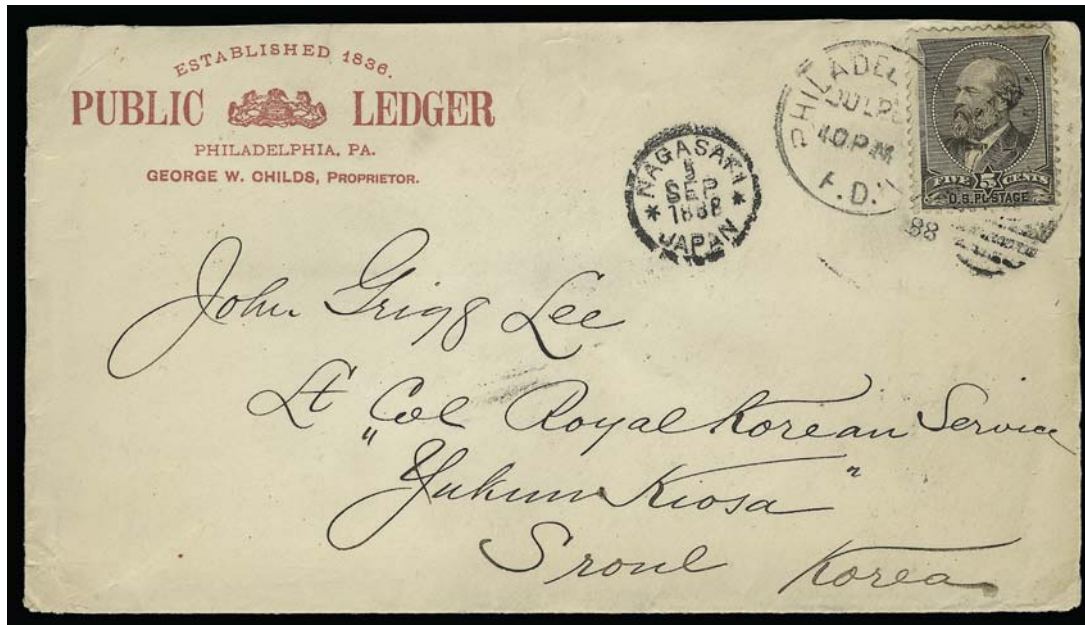 ESTABLISHED 1836.
PUBLIC LEDGER
PHILADELPHIA, PA.
GEORGE W. CHILDS, PROPRIETOR.
NAGASAKI
5
SEP
1888
JAPAN
PHILADEL
JUL
10 PM
P.D.
88
FIVE 5 CENTS
U.S. POSTAGE
John Grigg Lee
Lt Col Royal Korean Service
"Yukum Kiosa"
Sroul Korea